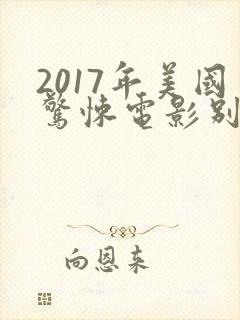 2017年美國
驚悚電影别
向恩来